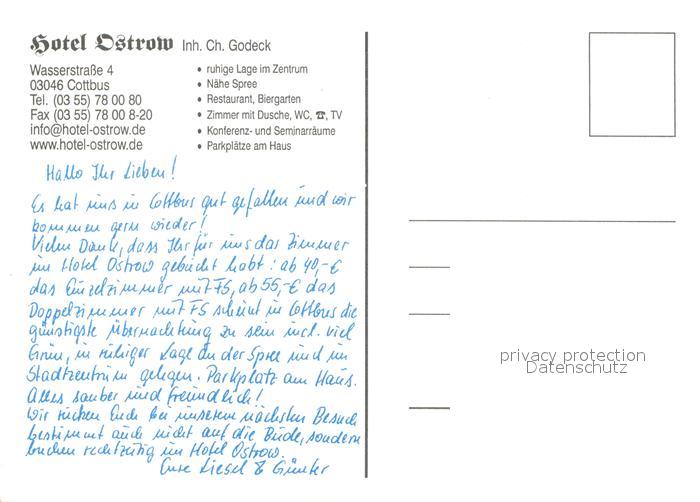 Hotel Ostrow Inh. Ch. Godeck
Wasserstraße 4
03046 Cottbus
Tel. (03 55) 78 00 80
Fax (03 55) 78 00 8-20
info@hotel-ostrow.de
www.hotel-ostrow.de
• ruhige Lage im Zentrum
• Nähe Spree
• Restaurant, Biergarten
• Zimmer mit Dusche, WC, ☎, TV
• Konferenz- und Seminarräume
• Parkplätze am Haus
Hallo Ihr Lieben!
Es hat uns in Cottbus gut gefallen und wir
kommen gern wieder!
Vielen Dank, dass Ihr für uns das Zimmer
im Hotel Ostrow gebucht habt: ab 40,-€
das Einzelzimmer mit FS, ab 55,-€ das
Doppelzimmer mit FS scheint in Cottbus die
günstigste Übernachtung zu sein incl. viel
Grün, in ruhiger Lage an der Spree und im
Stadtzentrum gelegen. Parkplatz am Haus.
Alles sauber und freundlich!
Wir rücken Euch bei unserem nächsten Besuch
bestimmt auch nicht auf die Bude, sondern
buchen rechtzeitig im Hotel Ostrow.
Eure Liesel & Günter
privacy protection
Datenschutz